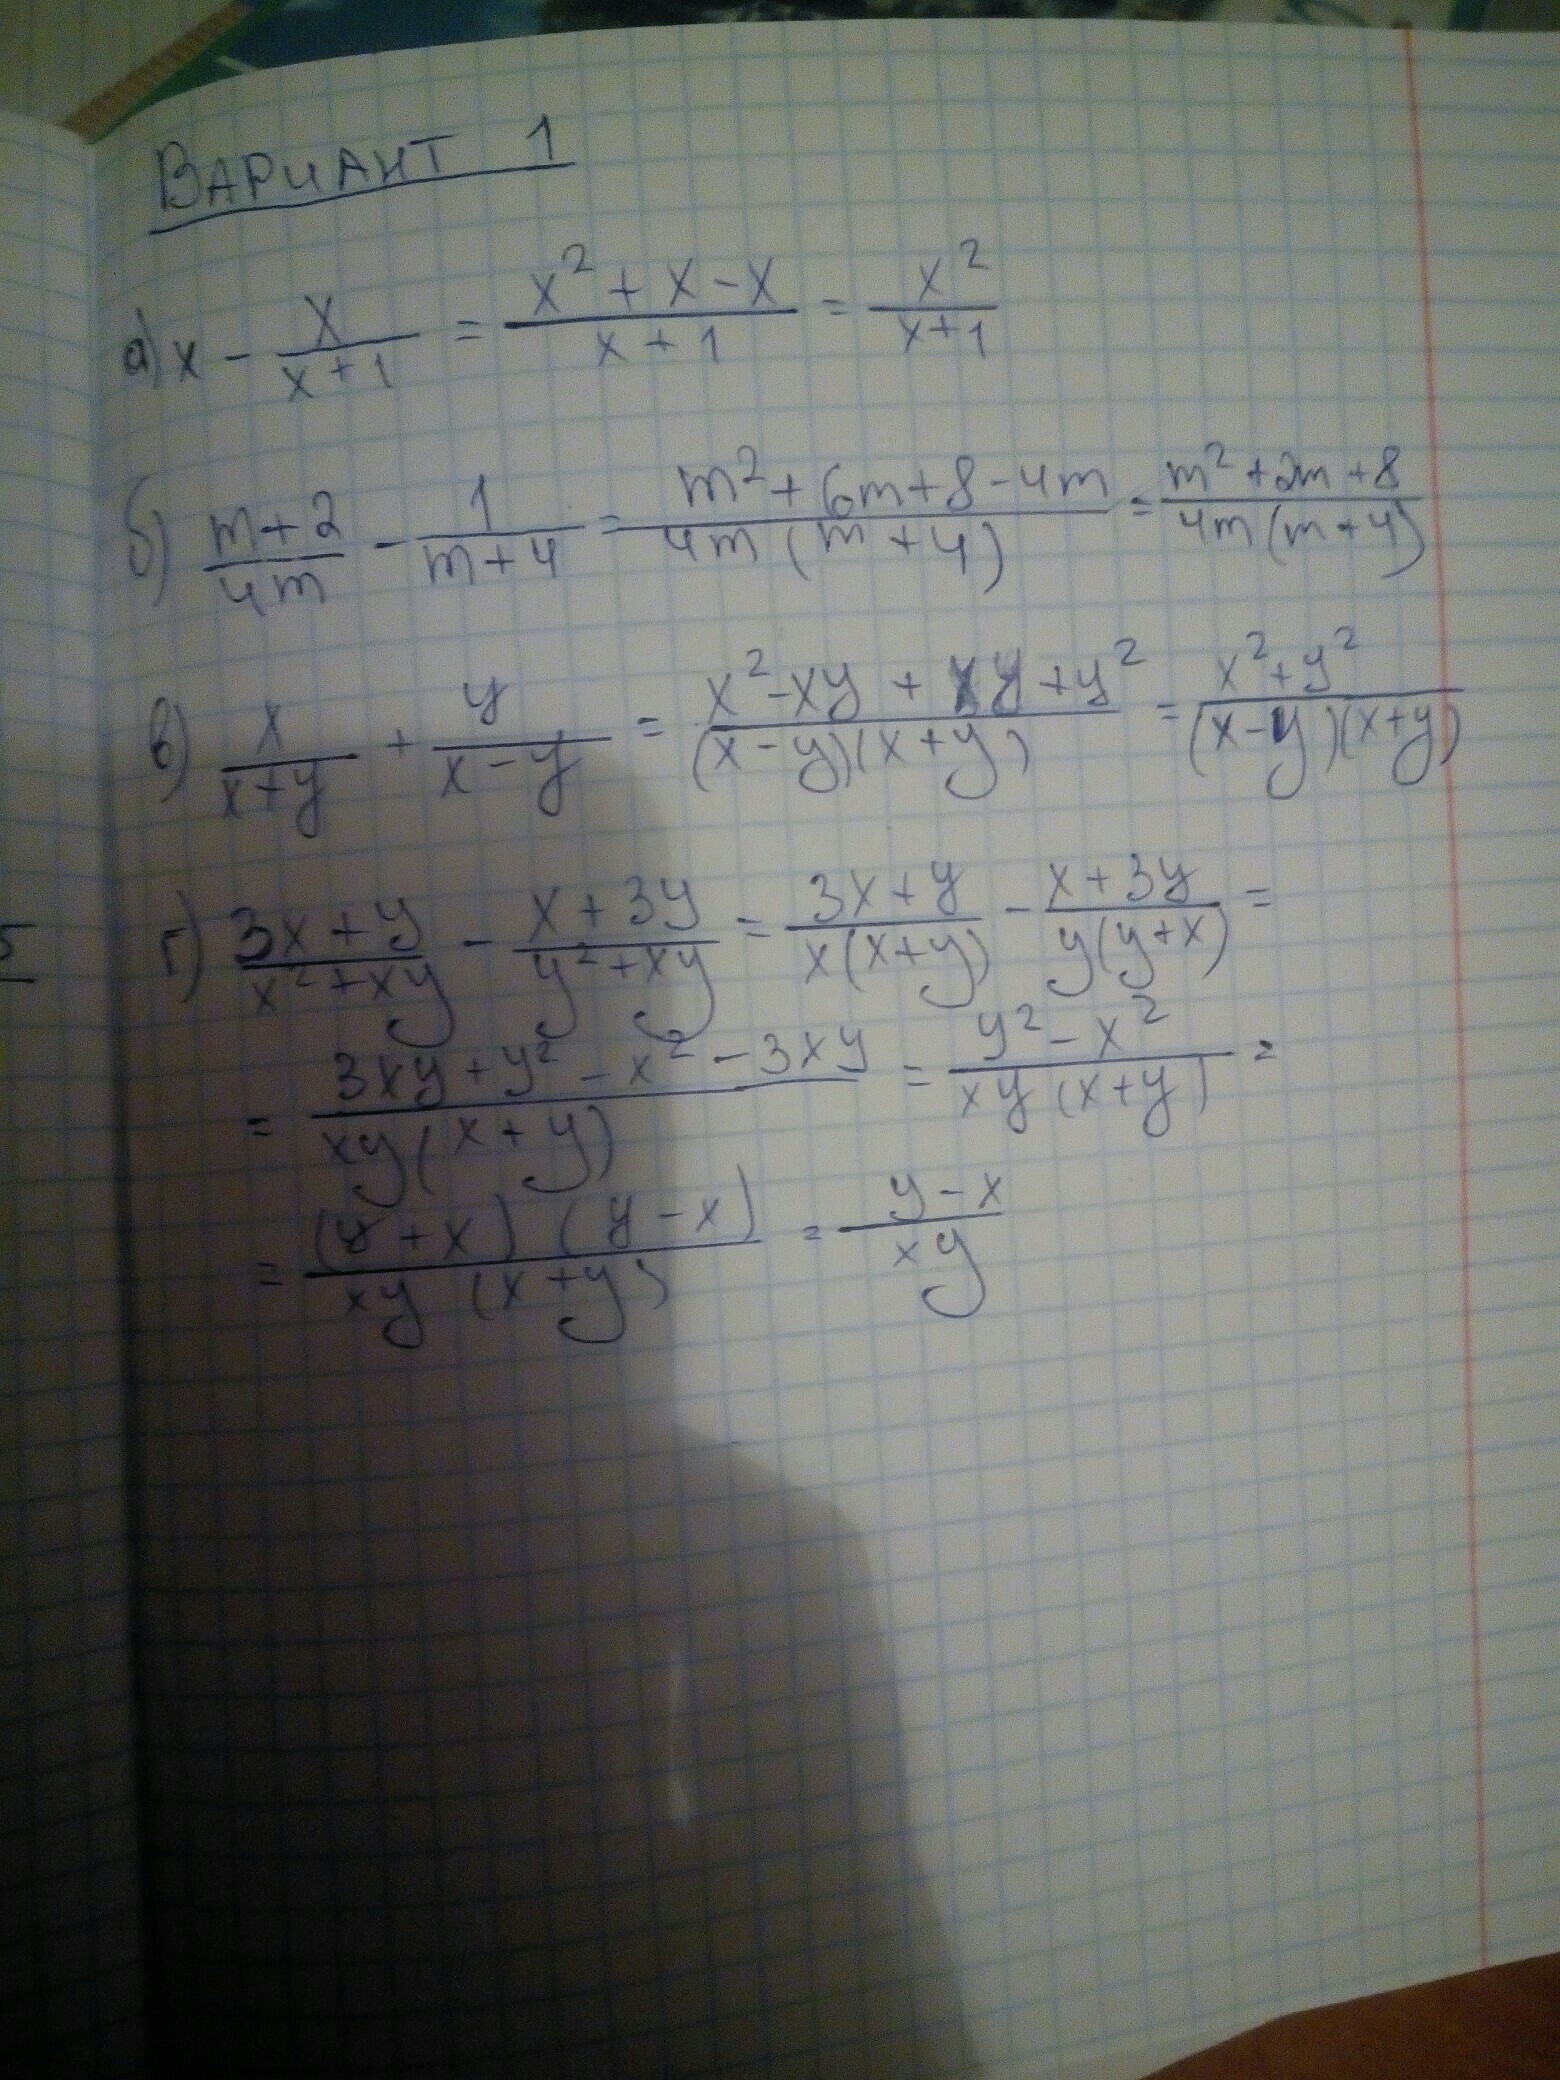 Вариант 1
а) x - x/(x+1) = (x²+x-x)/(x+1) = x²/(x+1)
б) (m+2)/4m - 1/(m+4) = (m²+6m+8-4m)/(4m(m+4)) = (m²+2m+8)/(4m(m+4))
в) x/(x+y) + y/(x-y) = (x²-xy+xy+y²)/((x-y)(x+y)) = (x²+y²)/((x-y)(x+y))
г) (3x+y)/(x²+xy) - (x+3y)/(y²+xy) = (3x+y)/(x(x+y)) - (x+3y)/(y(y+x)) =
= (3xy+y²-x²-3xy)/(xy(x+y)) = (y²-x²)/(xy(x+y)) =
= ((y+x)(y-x))/(xy(x+y)) = (y-x)/xy
5